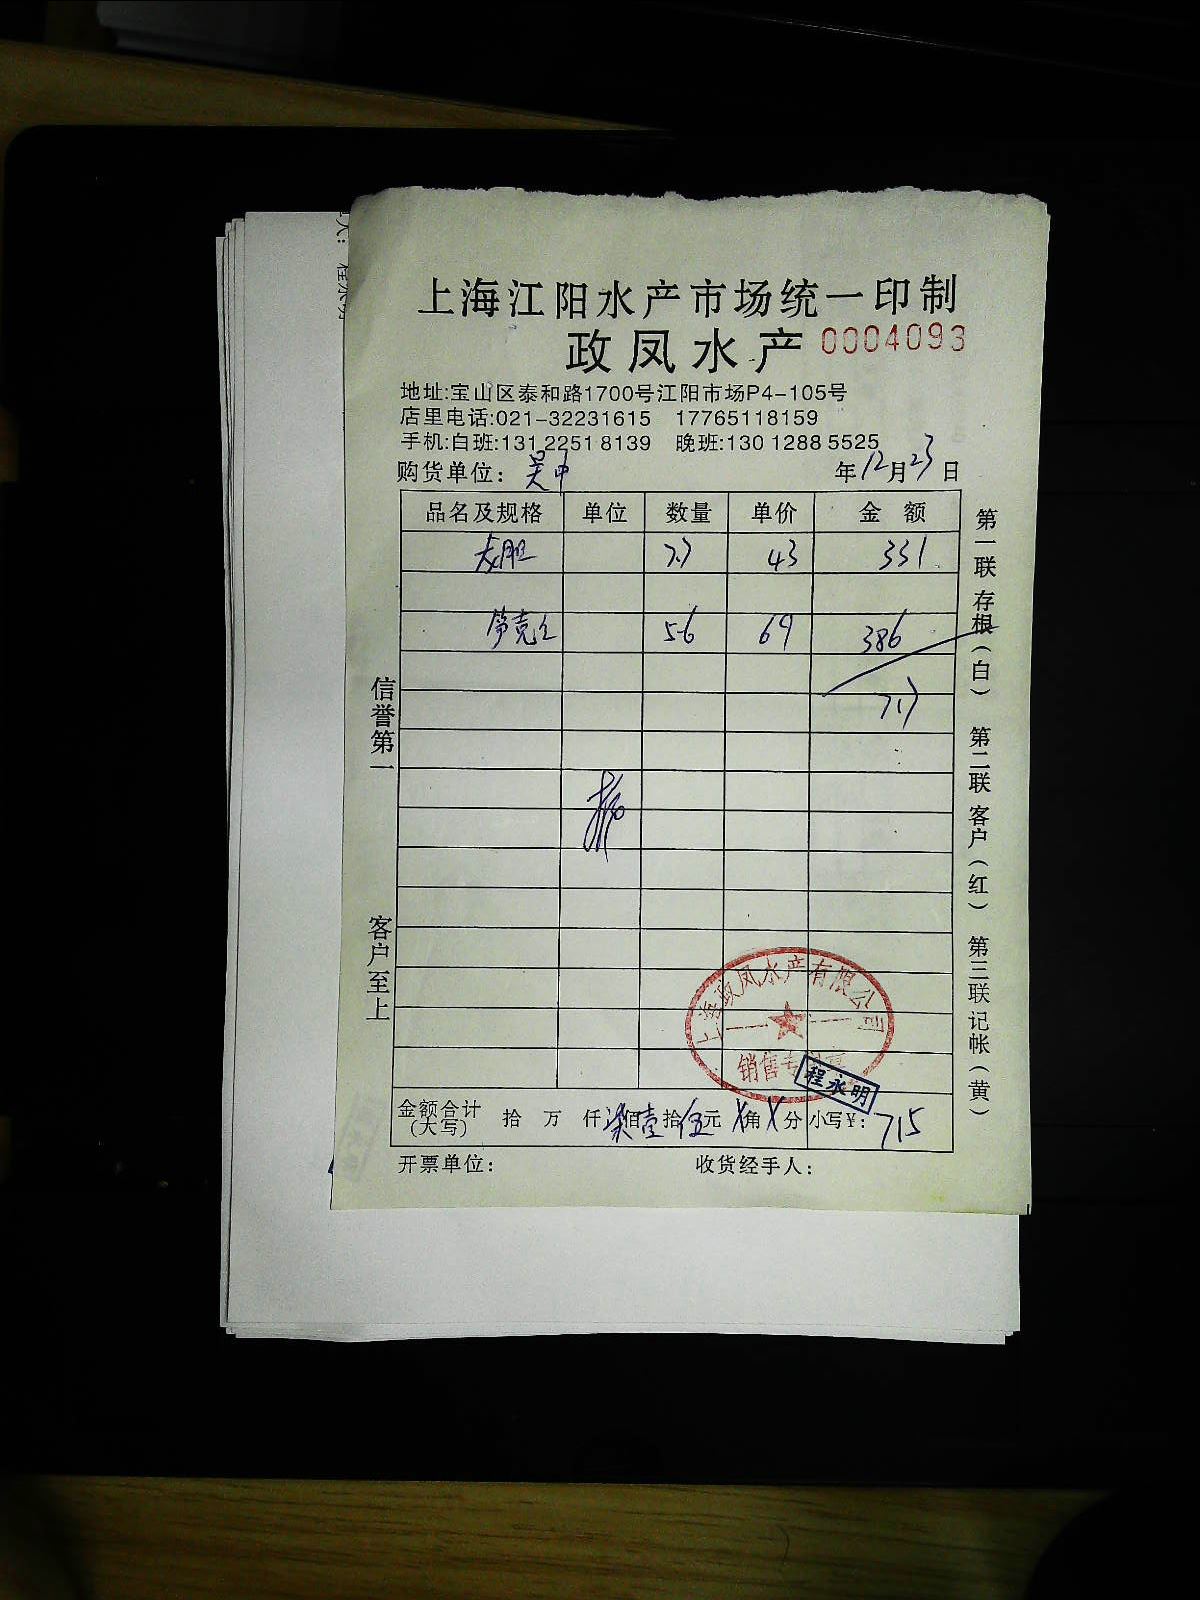 上海江阳水产市场统一印制
政凤水产 0004093
地址:宝山区泰和路1700号江阳市场P4-105号
店里电话:021-32231615 17765118159
手机:白班:131 2251 8139 晚班:130 1288 5525
购货单位: 吴中 年12月23日
品名及规格 单位 数量 单价 金额
7.7 43 331
5.6 69 386
717
信誉第一
客户至上
第一联 存根(白) 第二联 客户(红) 第三联 记帐(黄)
上海政凤水产有限公司
销售专
程永明
金额合计(大写) 拾 万 仟 柒佰壹拾伍元 X角X分 小写¥: 715
开票单位: 收货经手人: